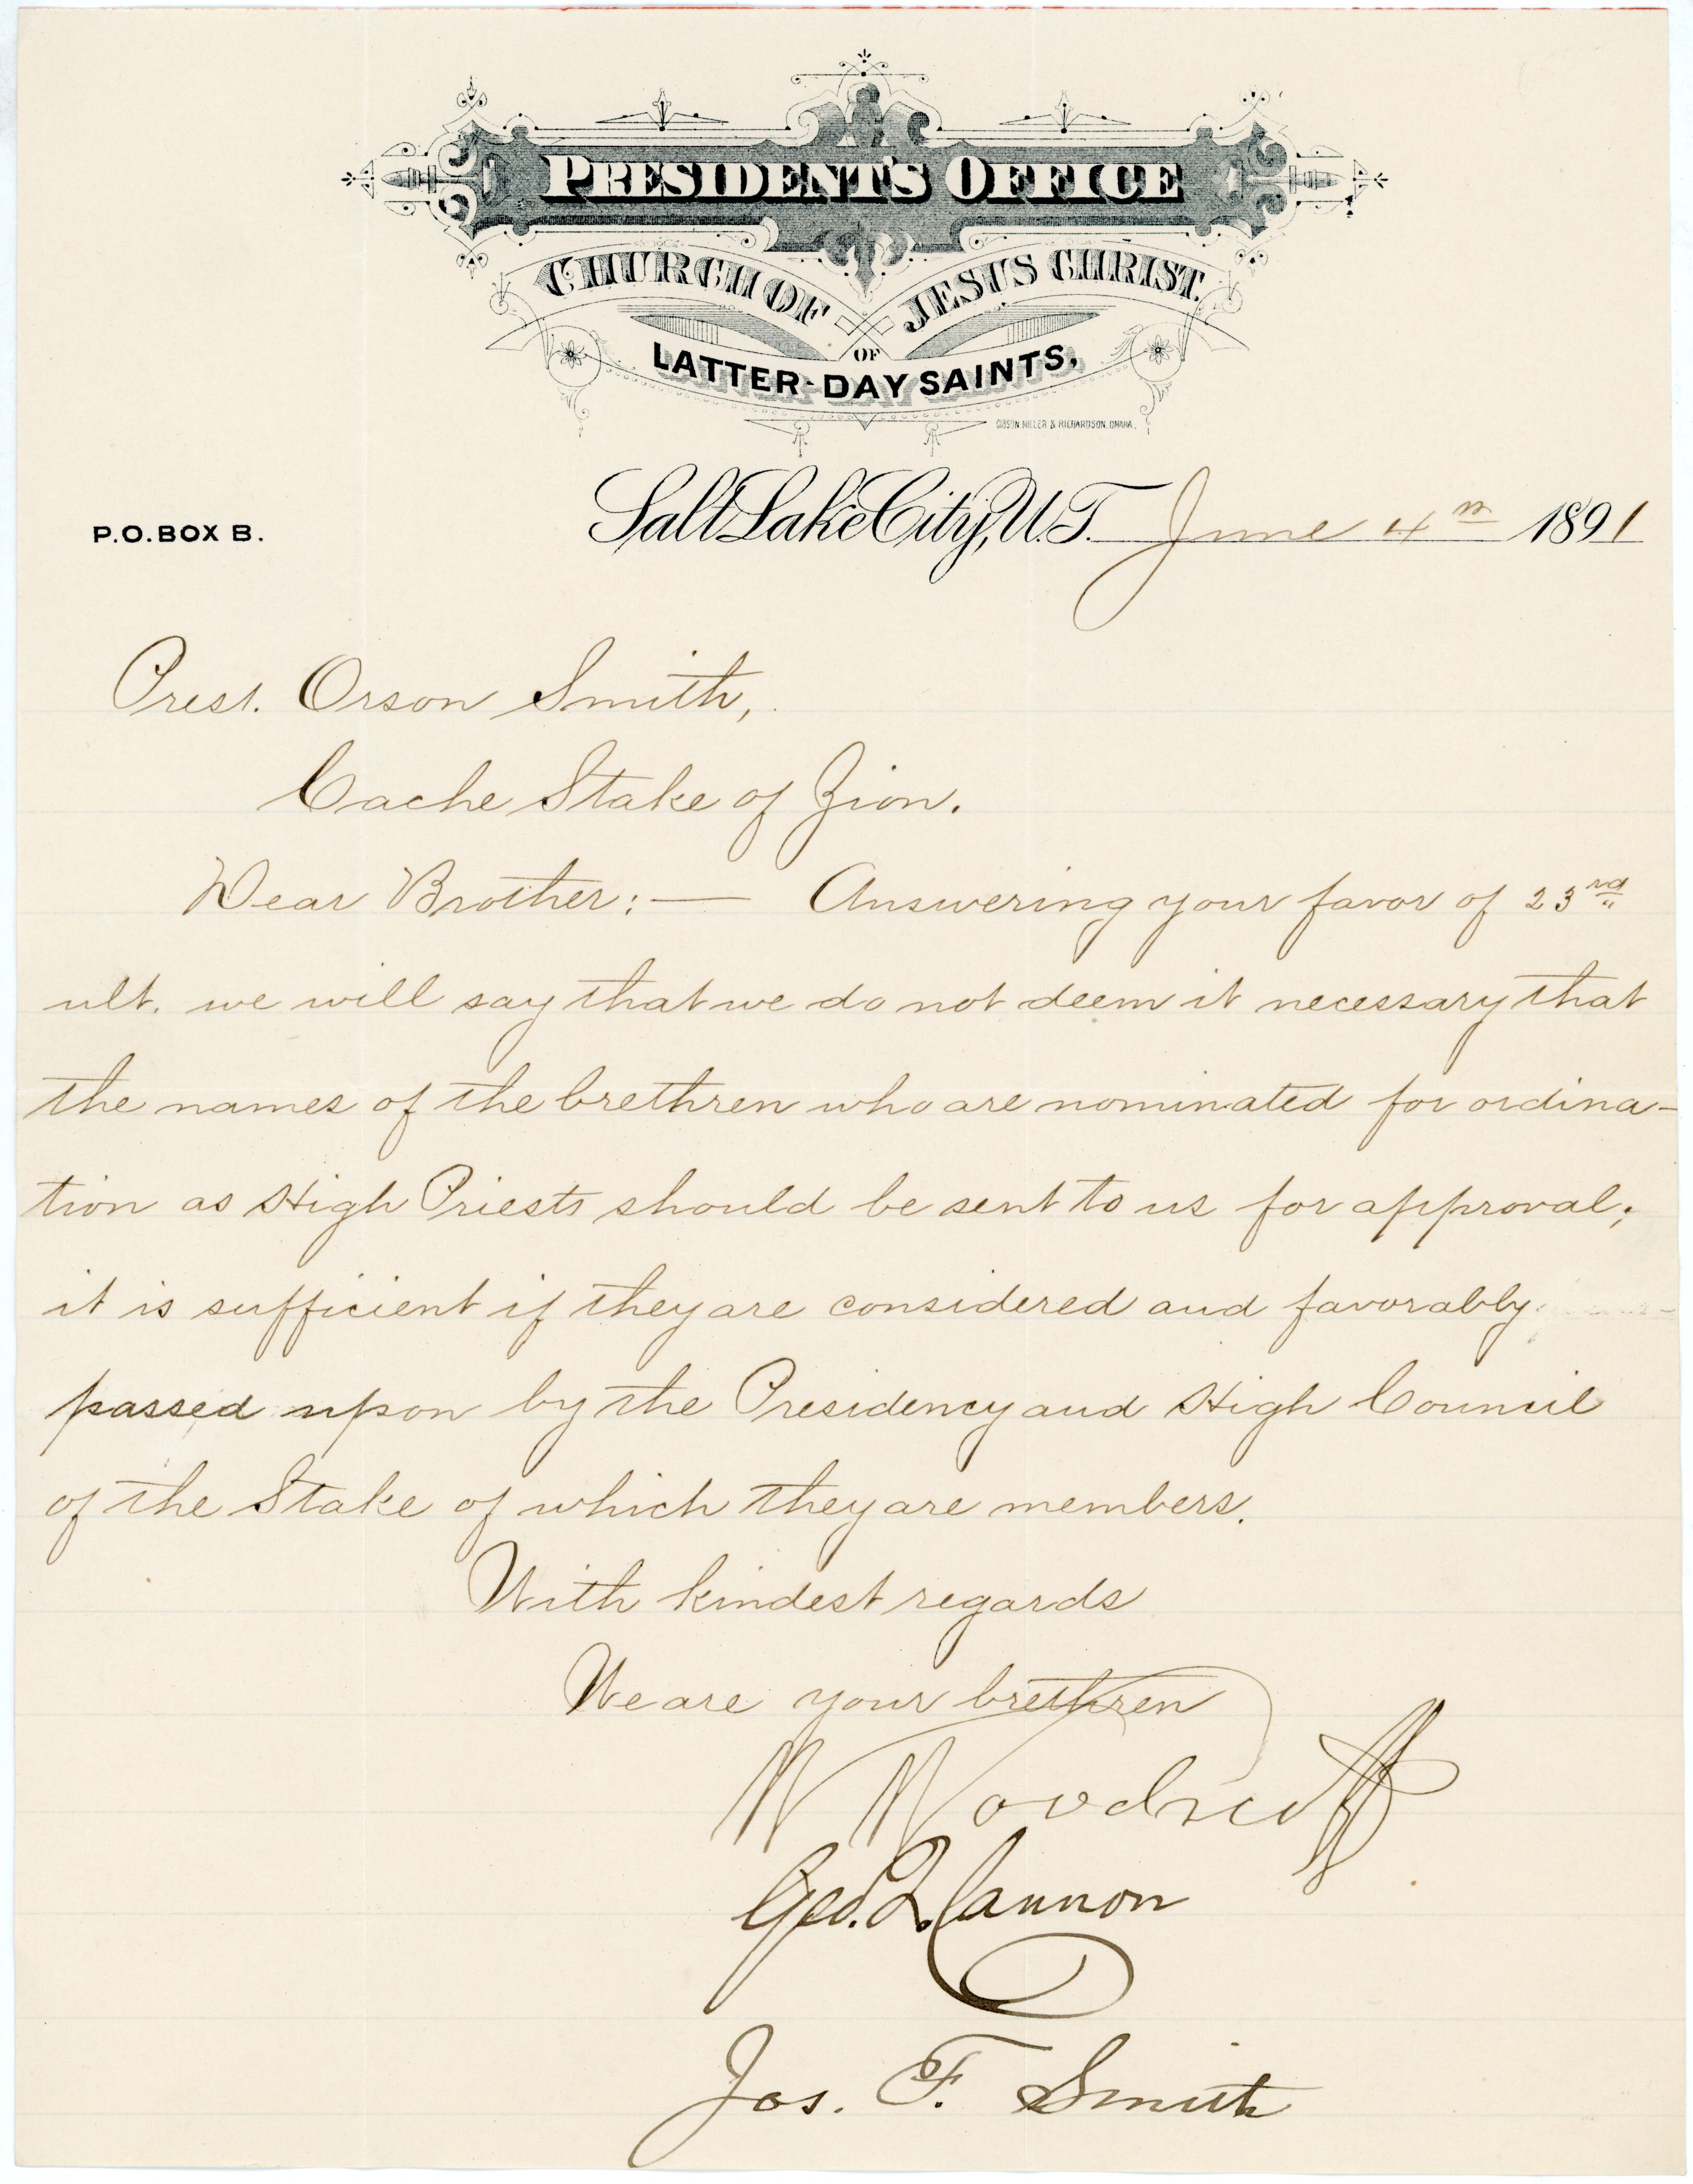 PRESIDENT'S OFFICE
CHURCH OF JESUS CHRIST
OF
LATTER-DAY SAINTS,
GIBSON MILLER & RICHARDSON, OMAHA.
P.O. BOX B. Salt Lake City, U.T. June 4th 1891
Prest. Orson Smith,
Cache Stake of Zion.
Dear Brother:— Answering your favor of 23rd
ult. we will say that we do not deem it necessary that
the names of the brethren who are nominated for ordina-
tion as High Priests should be sent to us for approval;
it is sufficient if they are considered and favorably
passed upon by the Presidency and High Council
of the Stake of which they are members.
With kindest regards
We are your brethren
W Woodruff
Geo. Q. Cannon
Jos. F. Smith